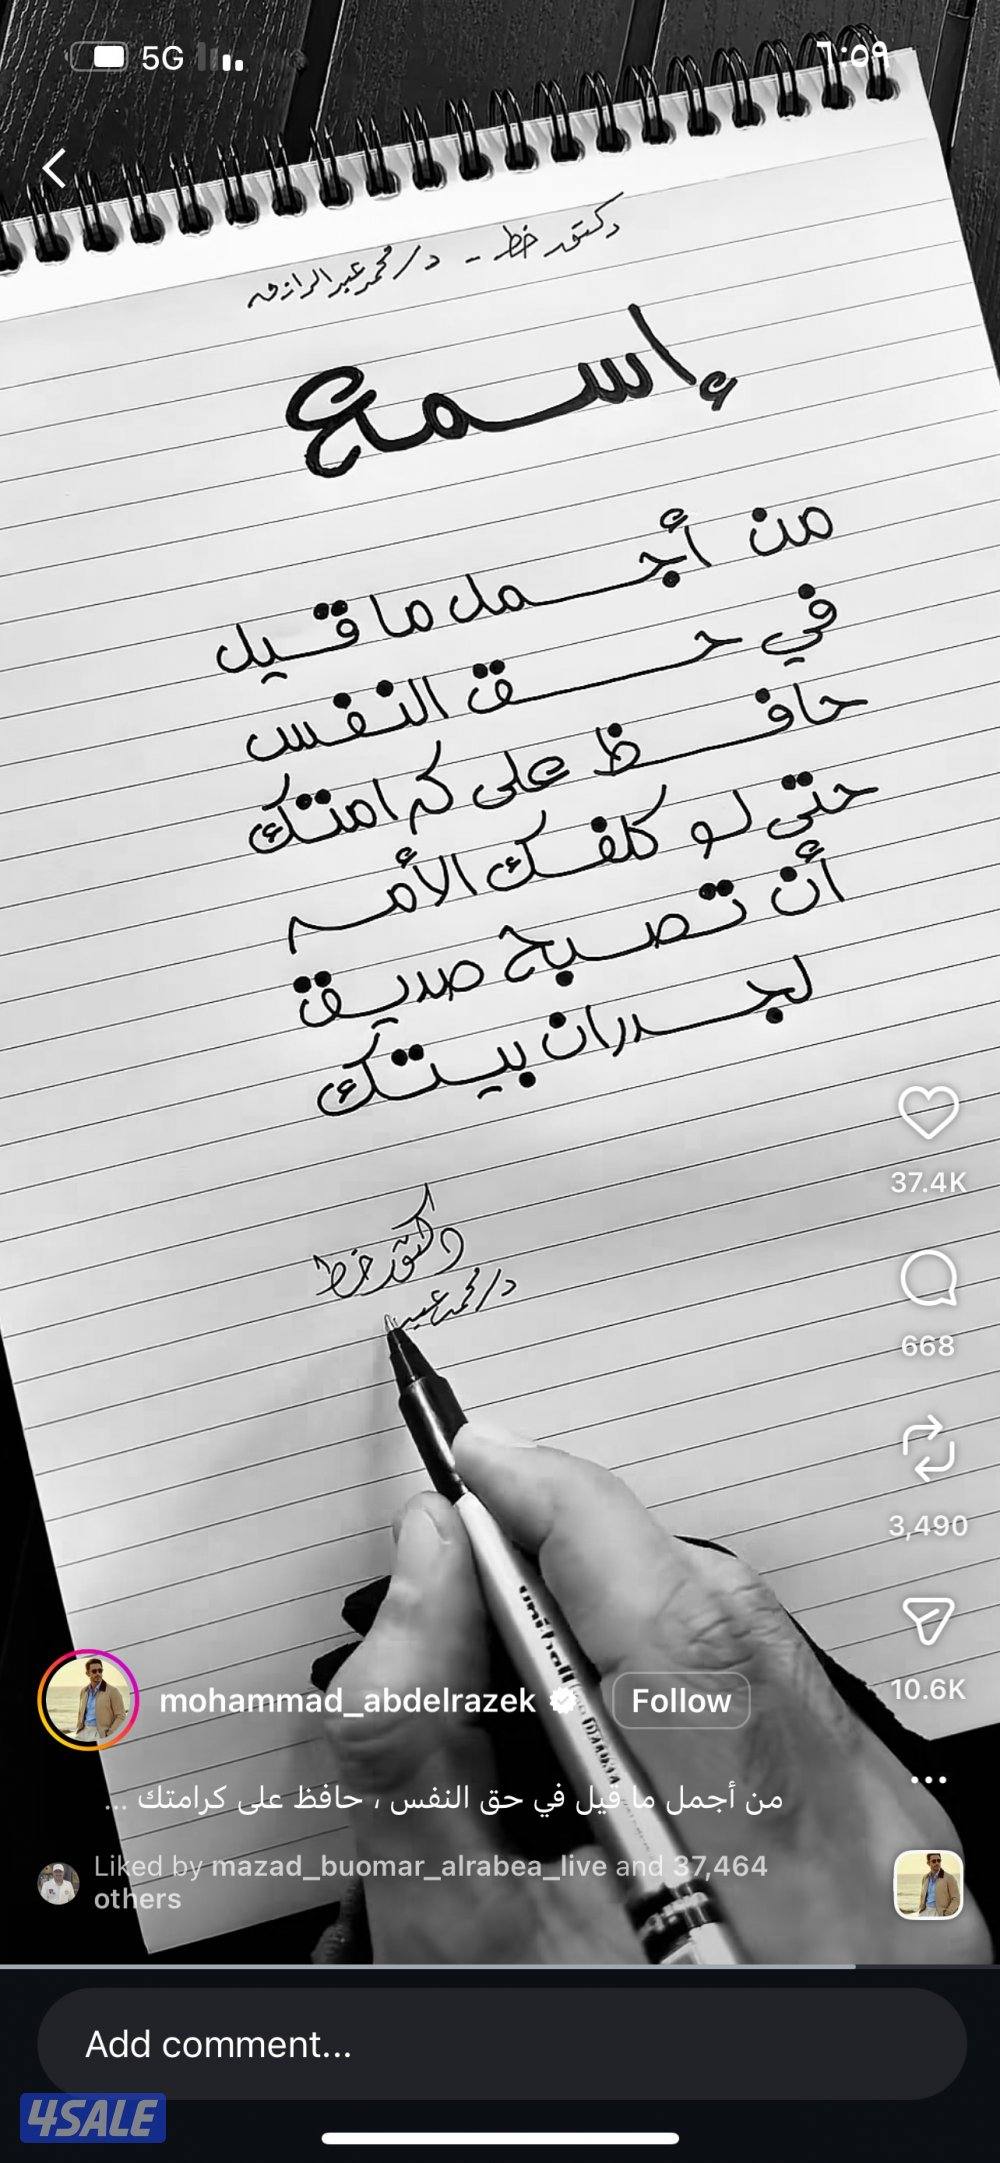 5G
٦:٥٩
دكتور خط - د/محمد عبد الرازق
إسمع
من أجمل ما قيل
في حق النفس
حافظ على كرامتك
حتى لو كلفك الأمر
أن تصبح صديق
لجدران بيتك
دكتور خط
د/محمد عبد
uniball
37.4K
668
3,490
10.6K
mohammad_abdelrazek
Follow
من أجمل ما قيل في حق النفس ، حافظ على كرامتك ...
Liked by mazad_buomar_alrabea_live and 37,464
others
Add comment...
4SALE